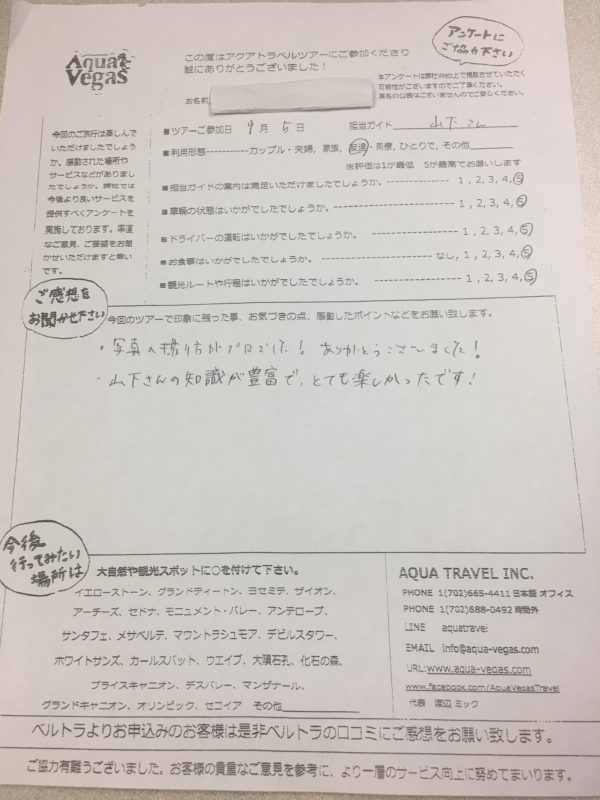 Aqua Vegas
この度はアクアトラベルツアーにご参加くださり
誠にありがとうございました！
アンケートに
ご協力下さい
本アンケートは弊社Web上で掲載させていただく
可能性がございますのでご了承ください。
実名の公表はございませんのでご安心ください。
お名前
今回のご旅行は楽しんで
いただけましたでしょう
か。感動された場所や
サービスなどがありまし
たでしょうか。弊社では
今後より良いサービスを
提供すべくアンケートを
実施しております。率直
なご意見、ご要望をお聞
かせいただけますと幸い
です。
■ツアーご参加日 9月 5日 担当ガイド 山下さん
■利用形態-----------カップル・夫婦, 家族, 友達・同僚, ひとりで, その他
※評価は1が最低 5が最高でお願いします
■担当ガイドの案内は満足いただけましたでしょうか。-------------- 1, 2, 3, 4, 5
■車輌の状態はいかがでしたでしょうか。------------------------ 1, 2, 3, 4, 5
■ドライバーの運転はいかがでしたでしょうか。------------------ 1, 2, 3, 4, 5
■お食事はいかがでしたでしょうか。-------------------- なし, 1, 2, 3, 4, 5
■観光ルートや行程はいかがでしたでしょうか。------------------ 1, 2, 3, 4, 5
ご感想を
お聞かせ下さい
今回のツアーで印象に残った事、お気づきの点、感動したポイントなどをお願い致します。
・写真の撮り方がプロでした！ ありがとうございました！
・山下さんの知識が豊富で、とても楽しかったです！
今後
行ってみたい
場所は
大自然や観光スポットに○を付けて下さい。
イエローストーン、グランドティートン、ヨセミテ、ザイオン、
アーチーズ、セドナ、モニュメント・バレー、アンテロープ、
サンタフェ、メサベルデ、マウントラシュモア、デビルスタワー、
ホワイトサンズ、カールスバット、ウエイブ、大隕石孔、化石の森、
ブライスキャニオン、デスバレー、マンザナール、
グランドキャニオン、オリンピック、セコイア その他
AQUA TRAVEL INC.
PHONE 1(702)665-4411 日本語 オフィス
PHONE 1(702)688-0492 時間外
LINE aquatravel
EMAIL info@aqua-vegas.com
URL:www.aqua-vegas.com
www.facebook.com/AquaVegasTravel
代表 渡辺 ミック
ベルトラよりお申込みのお客様は是非ベルトラの口コミにご感想をお願い致します。
ご協力有難うございました。お客様の貴重なご意見を参考に、より一層のサービス向上に努めてまいります。